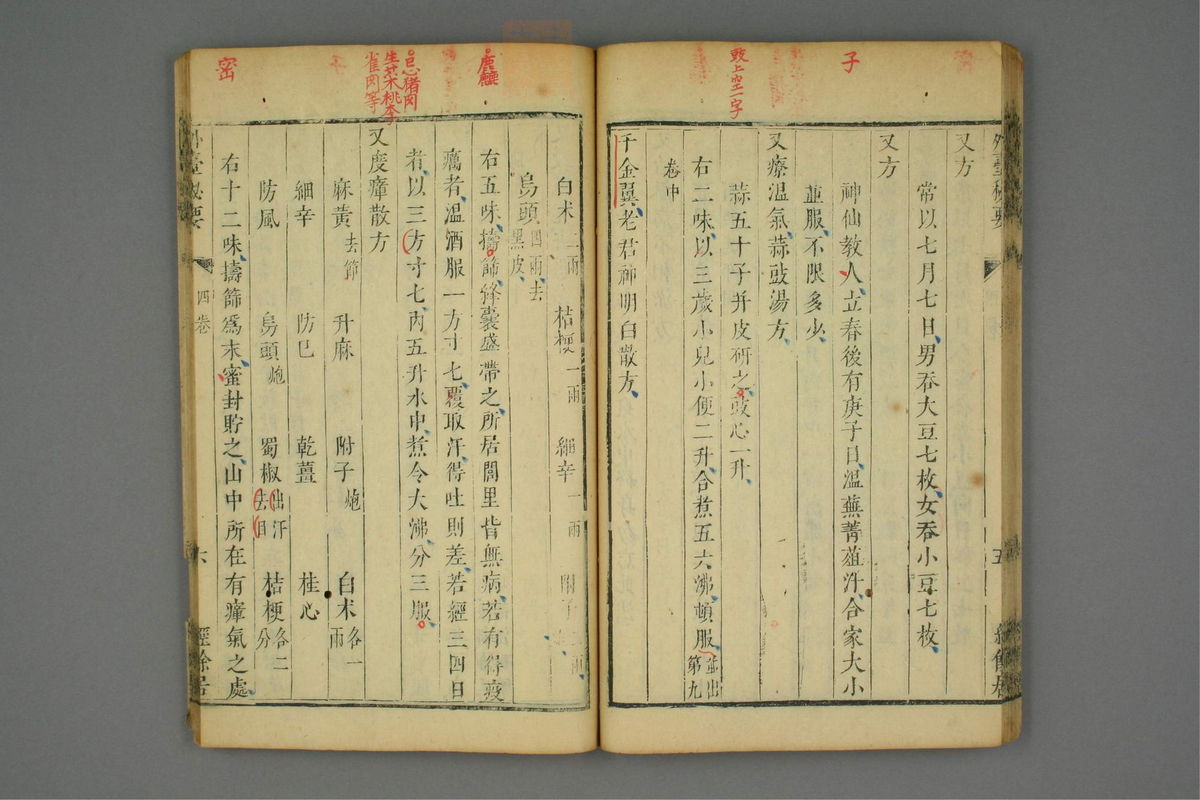 子
豉上空一字
外臺秘要
五
又方
常以七月七日男吞大豆七枚女吞小豆七枚
又方
神仙教人立春後有庚子日溫蕪菁葅汁合家大小
並服不限多少
又療溫氣蒜豉湯方
蒜五十子并皮研之豉心一升
右二味以三歲小兒小便二升合煮五六沸頓服並出第九
卷中
千金翼老君神明白散方
塵
忌猪肉
生菜桃李
雀肉等
密
白术二兩 桔梗一兩 細辛一兩 附子二兩
烏頭四兩去黑皮
右五味擣篩絳囊盛帶之所居閭里皆無病若有得疫
癘者溫酒服一方寸匕覆取汗得吐則差若經三四日
者以三方寸匕內五升水中煮令大沸分三服
又度瘴散方
麻黃去節 升麻 附子炮 白术各一兩
細辛 防已 乾薑 桂心
防風 烏頭炮 蜀椒出汗去目 桔梗各二分
右十二味擣篩爲末蜜封貯之山中所在有瘴氣之處
外臺秘要
四卷
六
經餘居